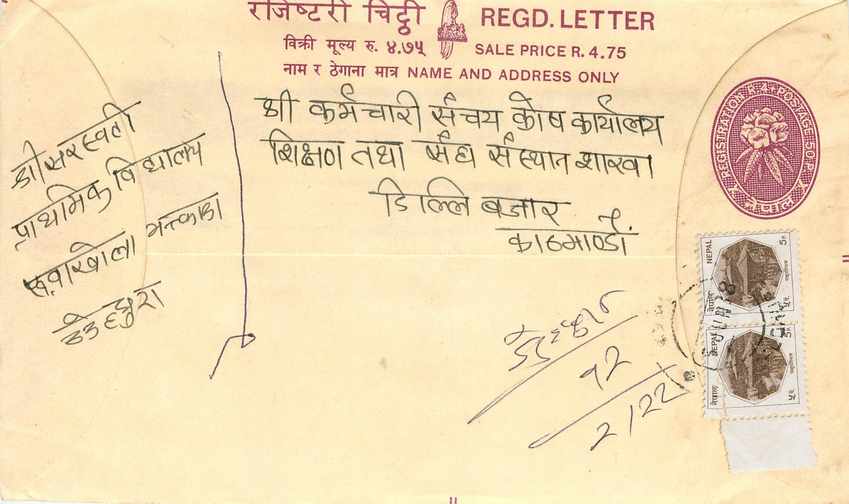 रजिष्टरी चिट्ठी REGD. LETTER
विक्री मूल्य रु. ४.७५ SALE PRICE R. 4.75
नाम र ठेगाना मात्र NAME AND ADDRESS ONLY
श्री कर्मचारी संचय कोष कार्यालय
शिक्षण तथा संघ संस्थान शाखा
डिल्लि बजार
काठमाण्डौं
श्री सरस्वती
प्राथमिक विद्यालय
डडेल्धुरा
REGISTRATION R.4 POSTAGE 50P
नेपाल
NEPAL
नेपाल
NEPAL
नेपाल
डडेल्धुरा
१२
2/22